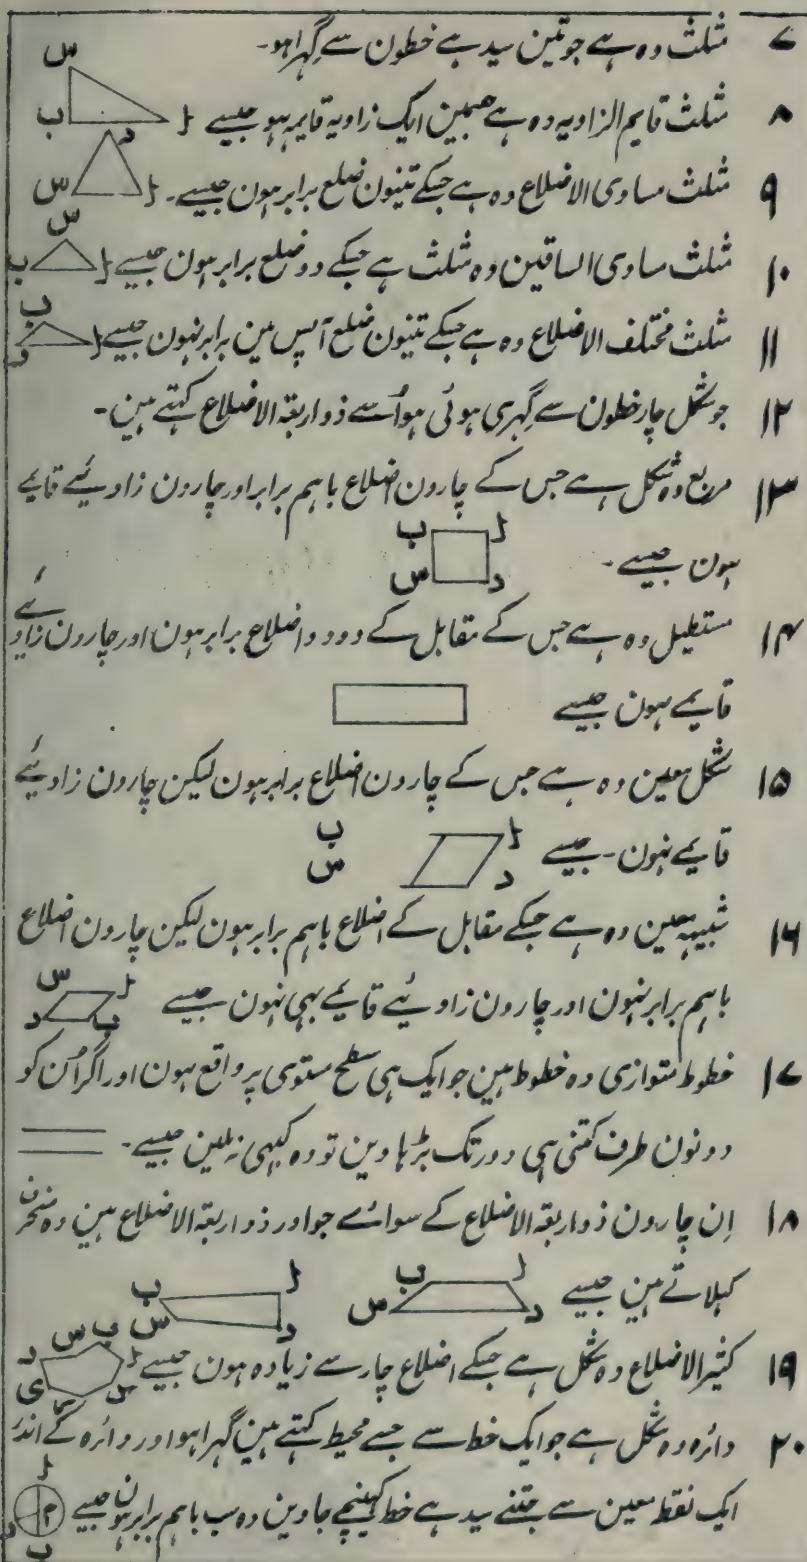 ۷ مثلث وہ ہے جو تین سیدہے خطون سے گہرا ہو۔ س
۸ مثلث قایم الزاویہ وہ ہے جسمین ایک زاویہ قایمہ ہو جیسے ا ب
۹ مثلث مساوی الاضلاع وہ ہے جسکے تینون ضلع برابر ہون جیسے۔ ا د س
۱۰ مثلث مساوی الساقین وہ مثلث ہے جسکے دو ضلع برابر ہون جیسے ا س ب
۱۱ مثلث مختلف الاضلاع وہ ہے جسکے تینون ضلع آپس مین برابر نہون جیسے ا ب د
۱۲ جو شکل چار خطون سے گہری ہوئی ہو اُسے ذواربعۃ الاضلاع کہتے ہین۔
۱۳ مربع وہ شکل ہے جس کے چارون اضلاع باہم برابر اور چارون زاویئے قایمے
ہون جیسے۔ ا ب د س
۱۴ مستطیل وہ ہے جس کے مقابل کے دو دو اضلاع برابر ہون اور چارون زاوئے
قایمے ہون جیسے
۱۵ شکل معین وہ ہے جس کے چارون اضلاع برابر ہون لیکن چارون زاویئے
قایمے نہون۔ جیسے ا د ب س
۱۶ شبیہ معین وہ ہے جسکے مقابل کے اضلاع باہم برابر ہون لیکن چارون اضلاع
باہم برابر نہون اور چارون زاویئے قایمے بہی نہون جیسے ا س ب د
۱۷ خطوط متوازی وہ خطوط ہین جو ایک ہی سطح مستوی پر واقع ہون اور اگر اُن کو
دونون طرف کتنی ہی دور تک بڑہا وین تو وہ کبہی نہ ملین جیسے۔
۱۸ اِن چارون ذواربعۃ الاضلاع کے سوائے جو اور ذواربعۃ الاضلاع ہین وہ منحرف
کہلاتے ہین جیسے ا ب د س ا ب د س
۱۹ کثیر الاضلاع وہ شکل ہے جسکے اضلاع چار سے زیادہ ہون جیسے ا ب س د ی
۲۰ دائرہ وہ شکل ہے جو ایک خط سے جسے محیط کہتے ہین گہرا ہو اور دائرہ کے اندر
ایک نقطہ معین سے جتنے سیدہے خط کہینچے جاوین وہ سب باہم برابر ہون جیسے ا م د ب